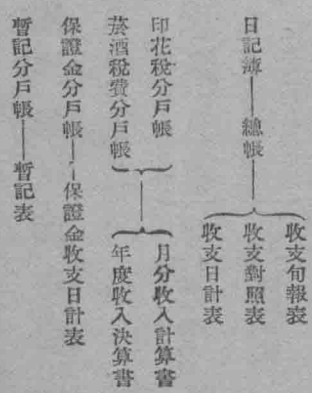 日記簿——總帳——
收支旬報表
收支對照表
收支日計表
印花稅分戶帳
菸酒稅費分戶帳
月分收入計算書
年度收入決算書
保證金分戶帳——保證金收支日計表
暫記分戶帳——暫記表